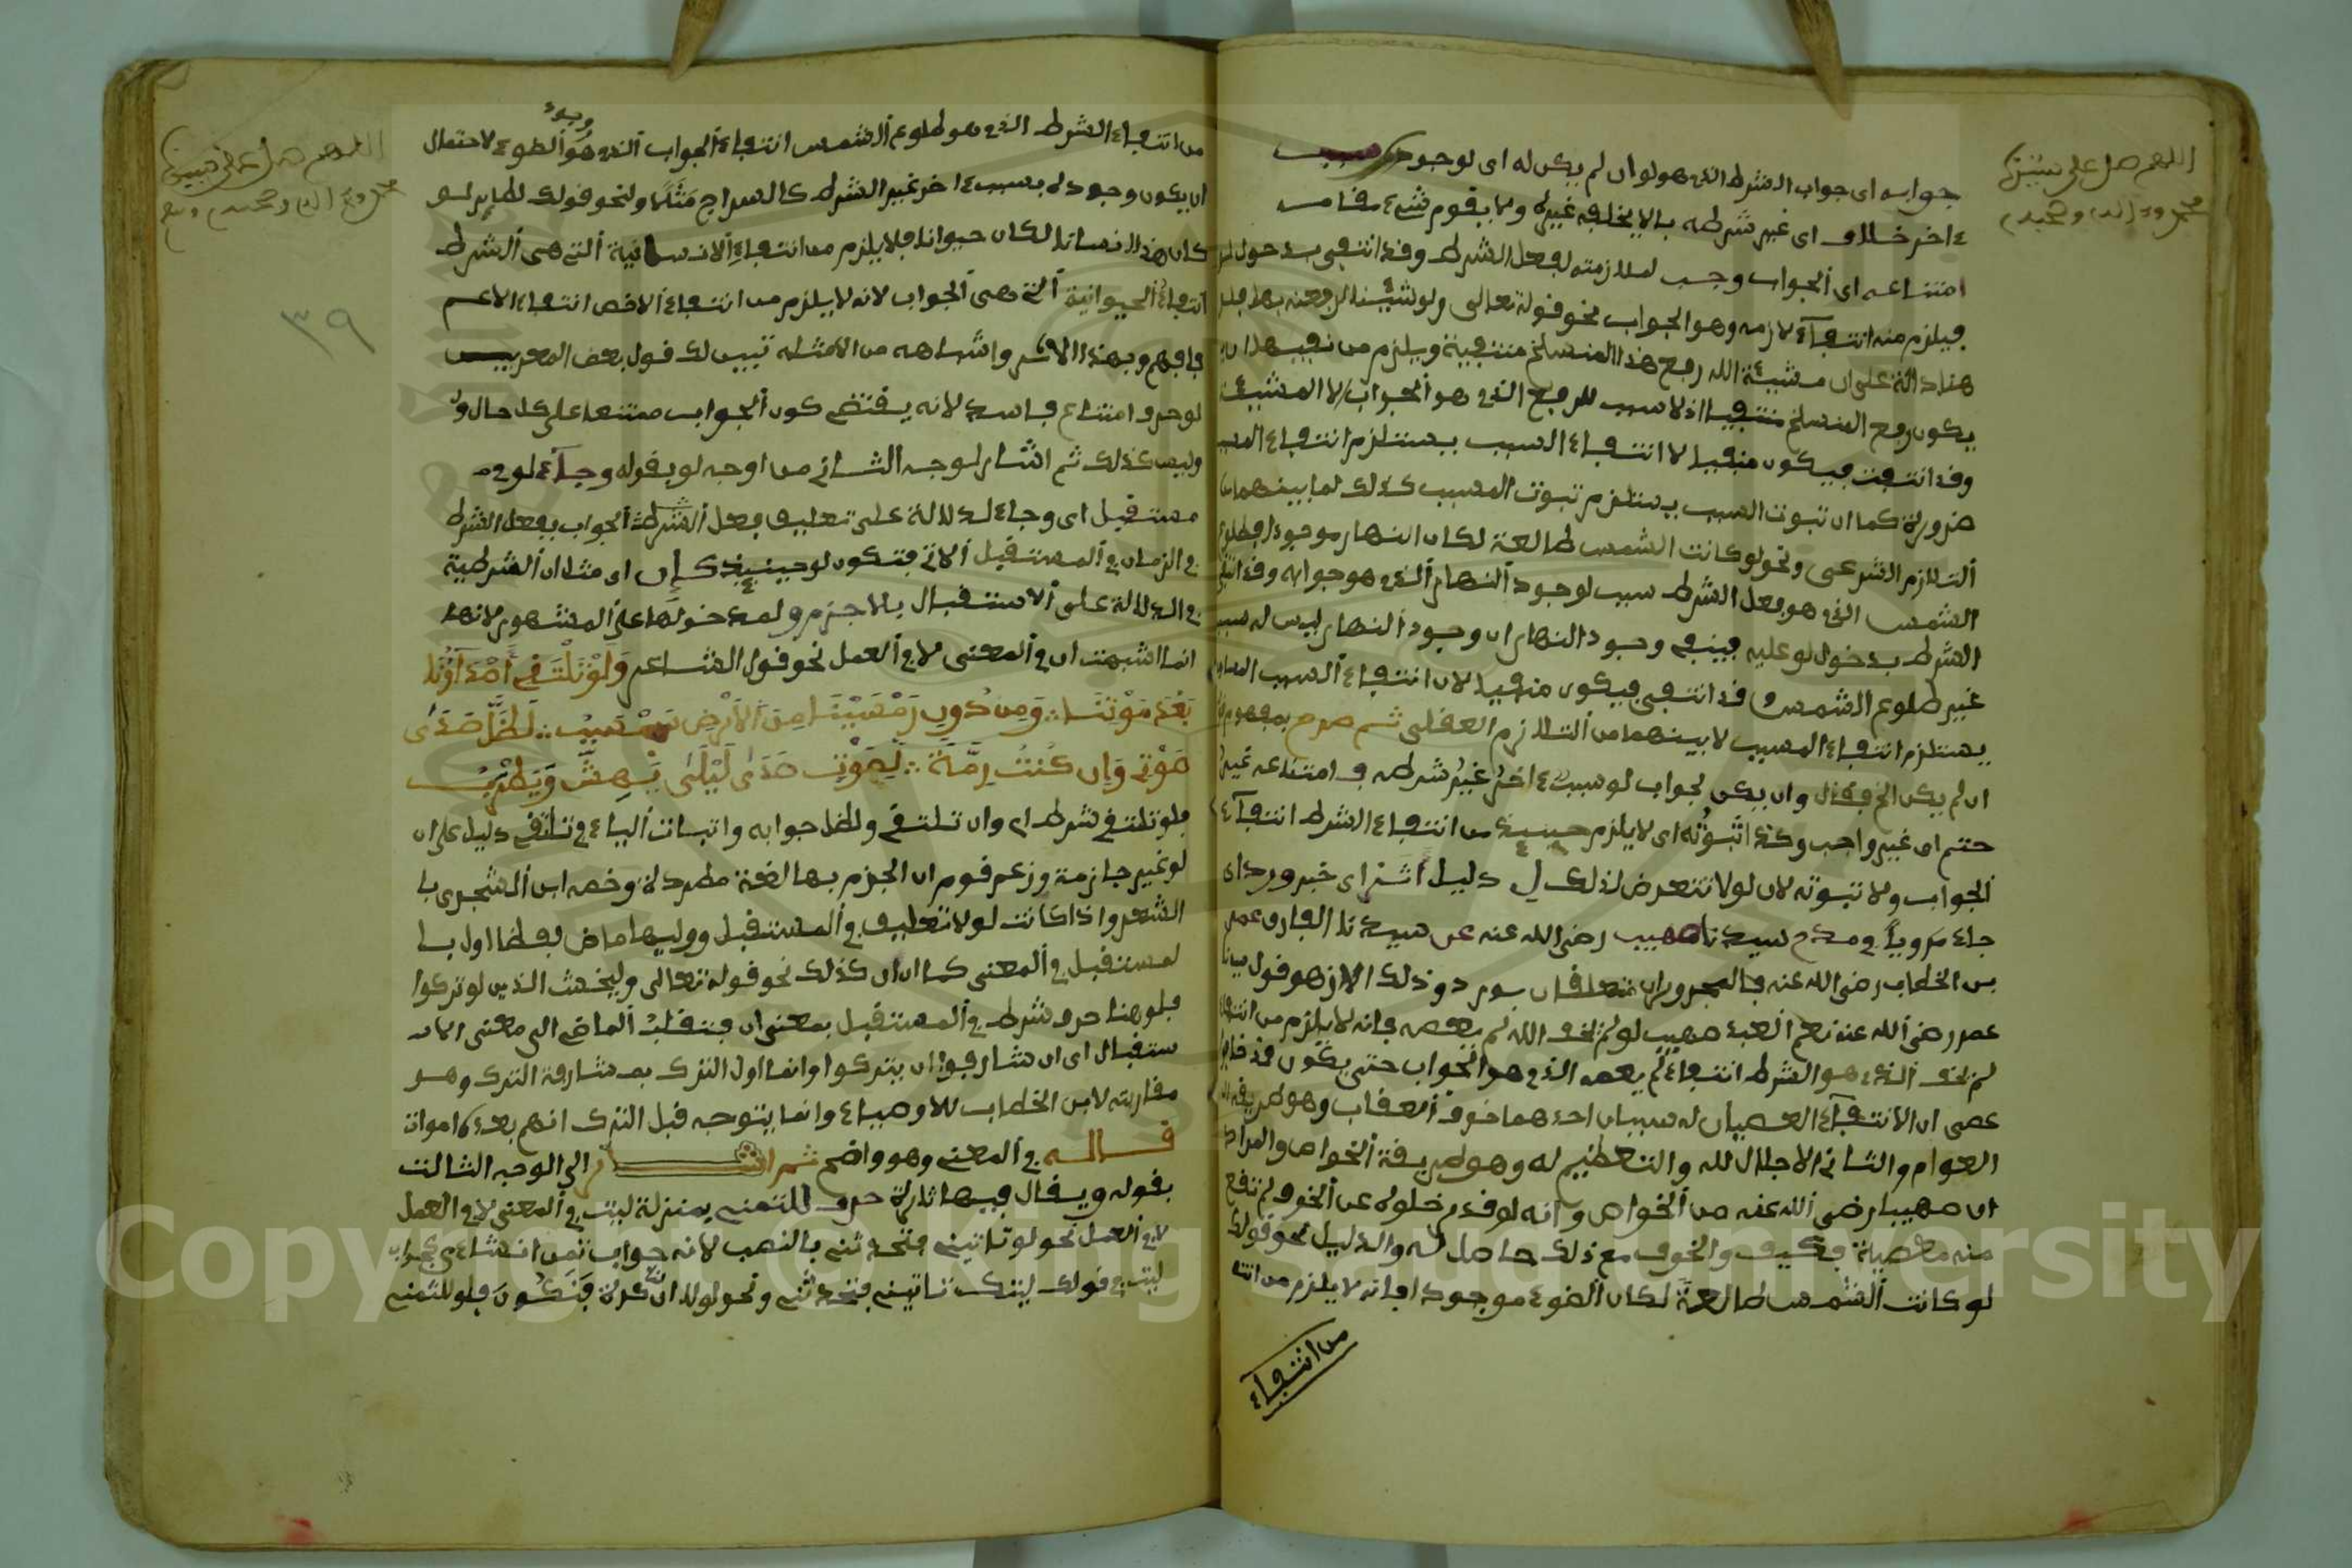 اللهم صل على نبينا
محمد وآله وصحبه
جوابه اى جواب الشرط الذى هو لو ان لم يكن له اى لوجود سبب
ءاخر خلاف اى غير شرطه بالا يخلفه غيره ولا يقوم شىء مقامه
امتناعه اى الجواب وجب لملازمته لفعل الشرط وقد انتفى بدخول لو
فيلزم منه انتفاء لازمه وهو الجواب نحو قوله تعالى ولو شئنا لرفعنه بها فلو
هنا دالة على ان مشيئة الله رفع هذا المنسلخ منتفية ويلزم من نفيها ان
يكون رفع المنسلخ منتفيا اذ لا سبب للرفع الذى هو الجواب الا المشيئة
وقد انتفت فيكون منفيا لا انتفاء السبب يستلزم انتفاء المسبب
ضرورة كما ان ثبوت السبب يستلزم ثبوت المسبب كذلك لما بينهما من
التلازم الشرعى ونحو لو كانت الشمس طالعة لكان النهار موجودا فطلوع
الشمس الذى هو فعل الشرط سبب لوجود النهار الذى هو جوابه وقد انتفى
الشرط بدخول لو عليه فينفى وجود النهار ان وجود النهار ليس له سبب
غير طلوع الشمس وقد انتفى فيكون منفيا لان انتفاء السبب المساوى
يستلزم انتفاء المسبب لا بينهما من التلازم العقلى ثم صرح بمفهوم
ان لم يكن الخ فقال وان يكن لجواب لو سبب ءاخر غير شرطه فـ امتناعه غير
حتم اى غير واجب وكذا ثبوته اى لا يلزم حينئذ من انتفاء الشرط انتفاء
الجواب ولا ثبوته لان لو لا تتعرض لذلك ل دليل اثر اى خبر ورد اى
جاء مرويا فى مدح سيدنا صهيب رضى الله عنه عن سيدنا الفاروق عمر
بن الخطاب رضى الله عنه فالمجروران متعلقان بورد وذلك الاثر هو قول سيدنا
عمر رضى الله عنه نعم العبد صهيب لو لم يخف الله لم يعصه فانه لا يلزم من انتفاء
لم يخف الذى هو الشرط انتفاء لم يعصه الذى هو الجواب حتى يكون قد خاف
عصى ان الانتفاء العصيان له سببان احدهما خوف العقاب وهو طريقة
العوام والثانى الاجلال لله والتعظيم له وهو طريقة الخواص والمراد
ان صهيبا رضى الله عنه من الخواص وانه لو قدر خلوه عن الخوف لم تقع
منه معصية فكيف والخوف مع ذلك حاصل له والدليل نحو قولك
لو كانت الشمس طالعة لكان الضوء موجودا فانه لا يلزم من انتفاء
من انتفاء
اللهم صل على نبينا
محمد وعلى اله وصحبه وسلم
٣٩
من انتفاء الشرط الذى هو طلوع الشمس انتفاء الجواب الذى هو الضوء لاحتمال
ان يكون وجوده بسبب ءاخر غير الشرط كالسراج مثلا ونحو قولك لطاير لو
كان هذا انسانا لكان حيوانا فلا يلزم من انتفاء الانسانية التى هى الشرط
انتفاء الحيوانية التى هى الجواب لانه لا يلزم من انتفاء الاخص انتفاء الاعم
فافهم وبهذا الاثر واشباهه من الامثلة تبين لك قول بعض المعربين
لو حرف امتناع فاسد لانه يقتضى كون الجواب ممتنعا على كل حال و
وليس كذلك ثم اشار لوجه الثانى من اوجه لو بقوله وجاء لو فى
مستقبل اى وجاء للدلالة على تعليق فعل الشرط الجواب بفعل الشرط
فى الزمان فى المستقبل الاتى فتكون لو حينئذ كإن اى مثل ان الشرطية
فى الدلالة على الاستقبال بلا جزم ولمدخولها على المشهور لانها
انما اشبهت ان فى المعنى لا فى العمل نحو قول الشاعر وَلَوْ تَلْتَقِى أَصْدَاؤُنَا
بَعْدَ مَوْتِنَا ∴ وَمِن دُونِ رَمْسَيْنَا مِنَ الأَرْضِ سَبْسَبُ ∴ لَظَلَّ صَدَى
صَوْتِى وَإِن كُنتُ رِمَّةً ∴ لِصَوْتِ صَدَى لَيْلَى يَهِشُّ وَيَطْرَبُ
فلو تلتقى شرط اى وان تلتقى ولظل جوابه واثبات الياء فى تلتقى دليل على ان
لو غير جازمة وزعم قوم ان الجزم بها لغة مطردة وخصه ابن الشجرى با
الشعر واذا كانت لو لا تعليق فى المستقبل ووليها ماض لفظا اول با
لمستقبل فى المعنى كما ان ان كذلك نحو قوله تعالى وليخش الذين لو تركوا
فلو هنا حرف شرط فى المستقبل بمعنى ان فتقلب الماضى الى معنى الا
ستقبال اى ان شارفوا ان يتركوا وانما اول الترك بمشارفة الترك وهو
مقاربته لان الخطاب للاوصياء وانما يتوجه قبل الترك انهم بعده اموات
قاله فى المعنى وهو واضح ثم اشار الى الوجه الثالث
بقوله ويقال فيها تارة حرف للتمنى بمنزلة ليت فى المعنى لا فى العمل
لا فى العمل نحو لو تاتينى فتحدثنى بالنصب لانه جواب تمن انشاءى كجواب
ليت فى قولك ليتك تاتينى فتحدثنى ونحو لو ان لنا كرة فنكون فلو للتمنى